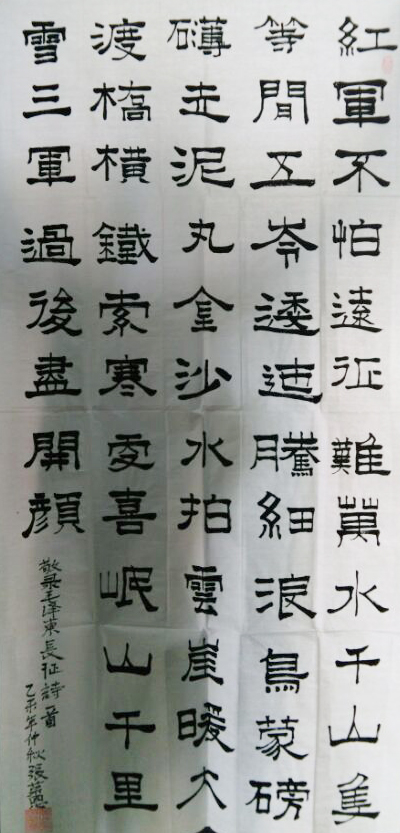 紅軍不怕遠征難萬水千山隻
等間五岺逶迤騰細浪烏蒙磅
礴走泥丸金沙水拍雲崖暖大
渡橋横鐵索寒更喜岷山千里
雪三軍過後盡開顔
敬录毛澤東長征詩一首
乙未年仲秋張